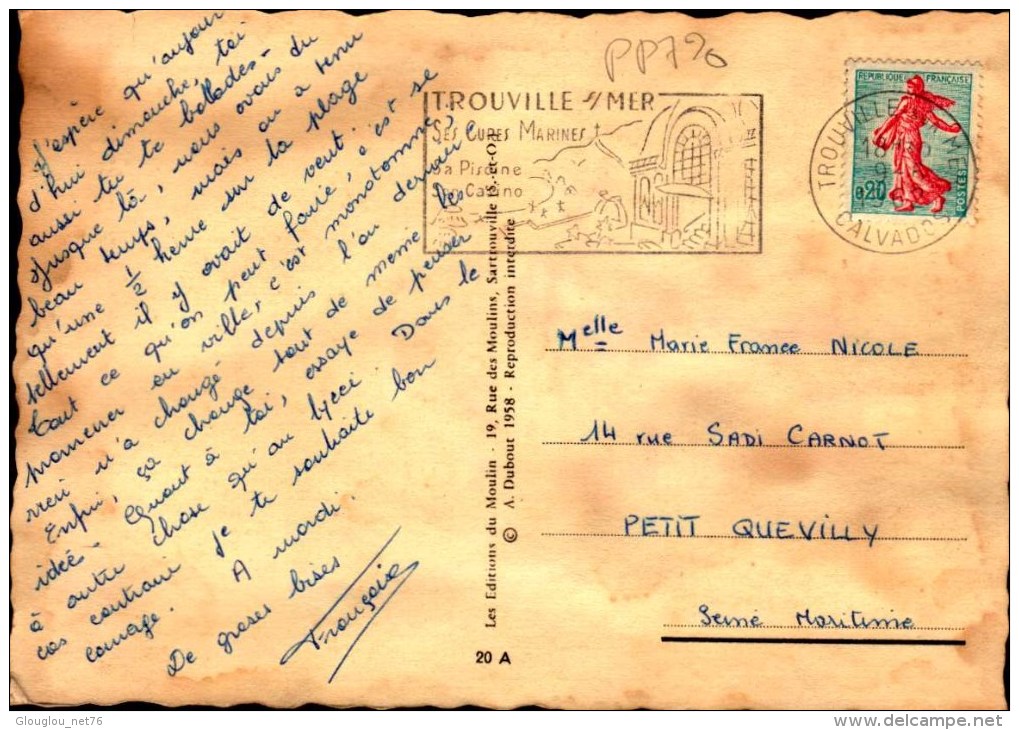 J'espère qu'aujour
d'hui dimanche, toi
aussi tu te ballades -
Jusque là, nous avons du
beau temps, mais on a tenu
qu'une 1/2 heure sur la plage
tellement il y avait de vent !
Tout ce qu'on peut faire, c'est se
promener en ville, c'est monotomne,
rien n'a changé depuis l'an dernier
Enfin, ça change tout de même les
idée - Quant à toi, essaye de penser
à autre chose qu'au lycée. Dans le
cas contraire je te souhaite bon
courage. A mardi.
De grosses bises
Françoise
PP790
TROUVILLE S/ MER
SES CURES MARINES
Sa Piscine
Son Casino
TROUVILLE SUR MER
CALVADOS
REPUBLIQUE FRANÇAISE
0,20
POSTES
Melle Marie France NICOLE
14 rue SADI CARNOT
PETIT QUEVILLY
Seine Maritime
Les Editions du Moulin - 19, Rue des Moulins, Sartrouville (S.-et-O.)
© A. Dubout 1958 - Reproduction interdite
20 A
Glouglou_net76
delcampe.net